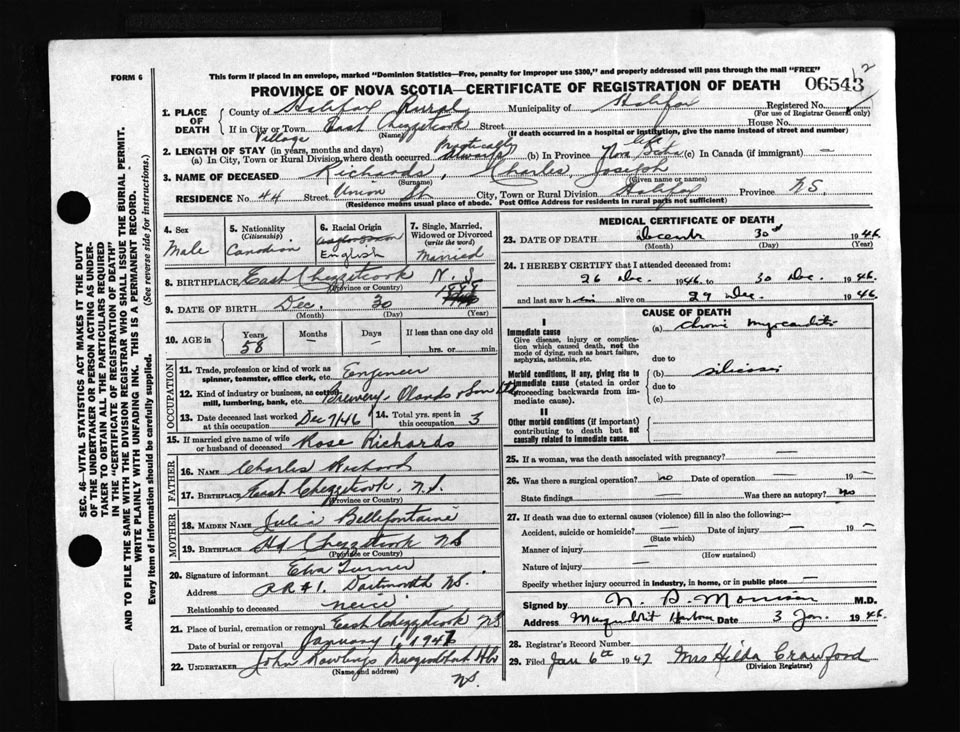 FORM 6
This form if placed in an envelope, marked "Dominion Statistics—Free, penalty for improper use $300," and properly addressed will pass through the mail "FREE"
PROVINCE OF NOVA SCOTIA—CERTIFICATE OF REGISTRATION OF DEATH
06543
2
1. PLACE OF DEATH
County of Halifax Rural Municipality of Halifax Registered No.
(For use of Registrar General only)
If in City or Town East Chezzetcook Street House No.
Village (Name) (If death occurred in a hospital or institution, give the name instead of street and number)
2. LENGTH OF STAY (in years, months and days)
(a) In City, Town or Rural Division where death occurred Practically always (b) In Province life Nova Scotia (c) In Canada (if immigrant) —
3. NAME OF DECEASED Richards, Charles Joseph
(Surname) (Given name or names)
RESIDENCE No. 44 Street Union St City, Town or Rural Division Halifax Province N.S.
(Residence means usual place of abode. Post Office Address for residents in rural parts not sufficient)
4. Sex Male
5. Nationality (Citizenship) Canadian
6. Racial Origin English
7. Single, Married, Widowed or Divorced (write the word) Married
8. BIRTHPLACE East Chezzetcook N.S
(Province or Country)
9. DATE OF BIRTH Dec. 30 1888
(Month) (Day) (Year)
10. AGE in Years 58 Months — Days — If less than one day old hrs. or min.
OCCUPATION
11. Trade, profession or kind of work as spinner, teamster, office clerk, etc. Engineer
12. Kind of industry or business, as cotton mill, lumbering, bank, etc. Brewery, Olands & Son Ltd
13. Date deceased last worked at this occupation Dec 7/46 14. Total yrs. spent in this occupation 3
15. If married give name of wife or husband of deceased Rose Richards
FATHER
16. NAME Charles Richards
17. BIRTHPLACE East Chezzetcook, N.S.
(Province or Country)
MOTHER
18. MAIDEN NAME Julia Bellefontaine
19. BIRTHPLACE Hd Chezzetcook NS
(Province or Country)
20. Signature of informant Elva Turner
Address R.R #1. Dartmouth N.S.
Relationship to deceased neice
21. Place of burial, cremation or removal East Chezzetcook NS
Date of burial or removal January 1, 1947
22. UNDERTAKER John Rawlings Musquodoboit Hbr
(Name and address) NS.
MEDICAL CERTIFICATE OF DEATH
23. DATE OF DEATH December 30 1946
(Month) (Day) (Year)
24. I HEREBY CERTIFY that I attended deceased from:
26 Dec. 1946. to 30 Dec. 1946.
and last saw him alive on 29 Dec. 1946.
CAUSE OF DEATH
I
Immediate cause
Give disease, injury or complication which caused death, not the mode of dying, such as heart failure, asphyxia, asthenia, etc.
(a) Chronic myocarditis
due to
Morbid conditions, if any, giving rise to immediate cause (stated in order proceeding backwards from immediate cause).
(b) silicosis
due to
(c)
II
Other morbid conditions (if important) contributing to death but not causally related to immediate cause.
25. If a woman, was the death associated with pregnancy? —
26. Was there a surgical operation? no Date of operation — 19 —
State findings — Was there an autopsy? No
27. If death was due to external causes (violence) fill in also the following:—
Accident, suicide or homicide? — Date of injury — 19 —
(State which)
Manner of injury —
(How sustained)
Nature of injury —
Specify whether injury occurred in industry, in home, or in public place —
Signed by N. D. Morrison M.D.
Address Musquodoboit Harbour Date 3 Jan. 1946.
28. Registrar's Record Number
29. Filed Jan 6th 1947 Mrs Hilda Crawford
(Division Registrar)
SEC. 46—VITAL STATISTICS ACT MAKES IT THE DUTY
OF THE UNDERTAKER OR PERSON ACTING AS UNDERTAKER TO OBTAIN ALL THE PARTICULARS REQUIRED
IN THE "CERTIFICATE OF REGISTRATION OF DEATH"
AND TO FILE THE SAME WITH THE DIVISION REGISTRAR WHO SHALL ISSUE THE BURIAL PERMIT.
WRITE PLAINLY WITH UNFADING INK. THIS IS A PERMANENT RECORD.
Every item of information should be carefully supplied. (See reverse side for instructions.)